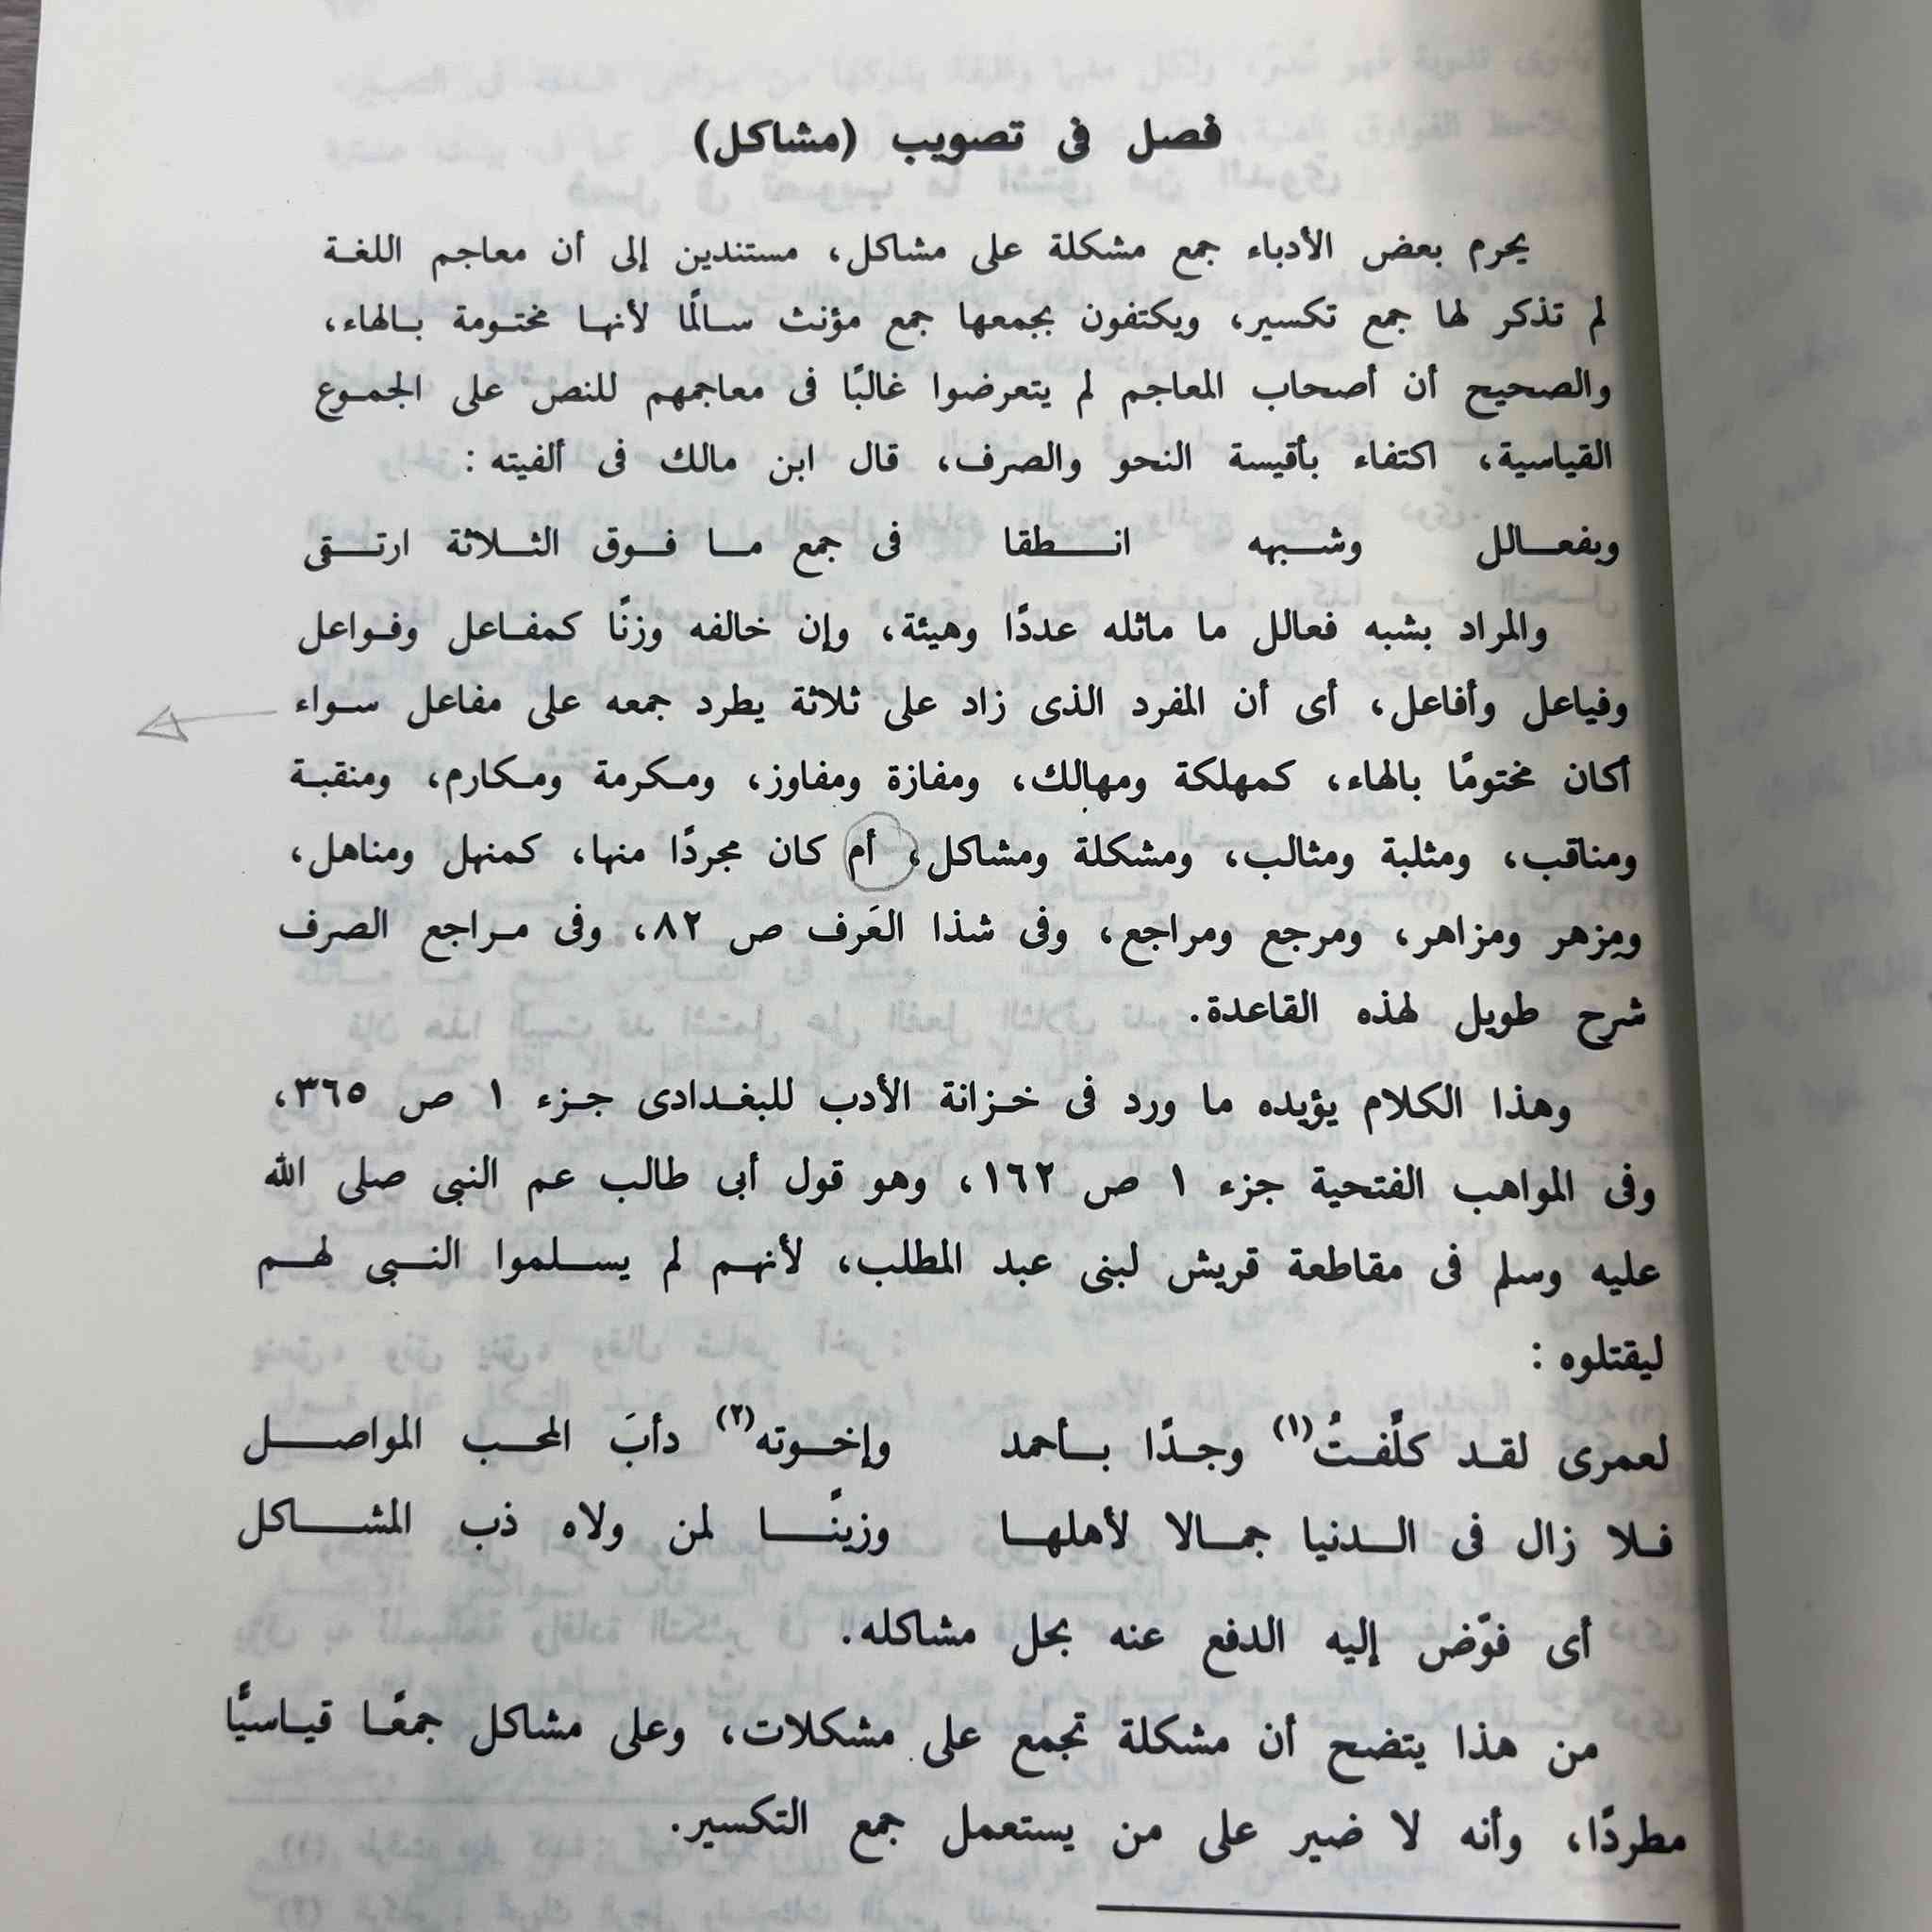 فصل فى تصويب (مشاكل)
يحرم بعض الأدباء جمع مشكلة على مشاكل، مستندين إلى أن معاجم اللغة
لم تذكر لها جمع تكسير، ويكتفون بجمعها جمع مؤنث سالمًا لأنها مختومة بالهاء،
والصحيح أن أصحاب المعاجم لم يتعرضوا غالبًا فى معاجمهم للنص على الجموع
القياسية، اكتفاء بأقيسة النحو والصرف، قال ابن مالك فى ألفيته :
وبفعالل وشبهه انطقا فى جمع ما فوق الثلاثة ارتقى
والمراد بشبه فعالل ما ماثله عددًا وهيئة، وإن خالفه وزنًا كمفاعل وفواعل
وفياعل وأفاعل، أى أن المفرد الذى زاد على ثلاثة يطرد جمعه على مفاعل سواء
أكان مختومًا بالهاء، كمهلكة ومهالك، ومفازة ومفاوز، ومكرمة ومكارم، ومنقبة
ومناقب، ومثلبة ومثالب، ومشكلة ومشاكل، أم كان مجردًا منها، كمنهل ومناهل،
ومزهر ومزاهر، ومرجع ومراجع، وفى شذا العَرف ص ٨٢، وفى مراجع الصرف
شرح طويل لهذه القاعدة.
وهذا الكلام يؤيده ما ورد فى خزانة الأدب للبغدادى جزء ١ ص ٣٦٥،
وفى المواهب الفتحية جزء ١ ص ١٦٢، وهو قول أبى طالب عم النبى صلى الله
عليه وسلم فى مقاطعة قريش لبنى عبد المطلب، لأنهم لم يسلموا النبى لهم
ليقتلوه :
لعمرى لقد كلَّفتُ(١) وجدًا بأحمد وإخوته(٢) دأبَ المحب المواصل
فلا زال فى الدنيا جمالا لأهلها وزينًا لمن ولاه ذب المشاكل
أى فوّض إليه الدفع عنه بحل مشاكله.
من هذا يتضح أن مشكلة تجمع على مشكلات، وعلى مشاكل جمعًا قياسيًّا
مطردًا، وأنه لا ضير على من يستعمل جمع التكسير.